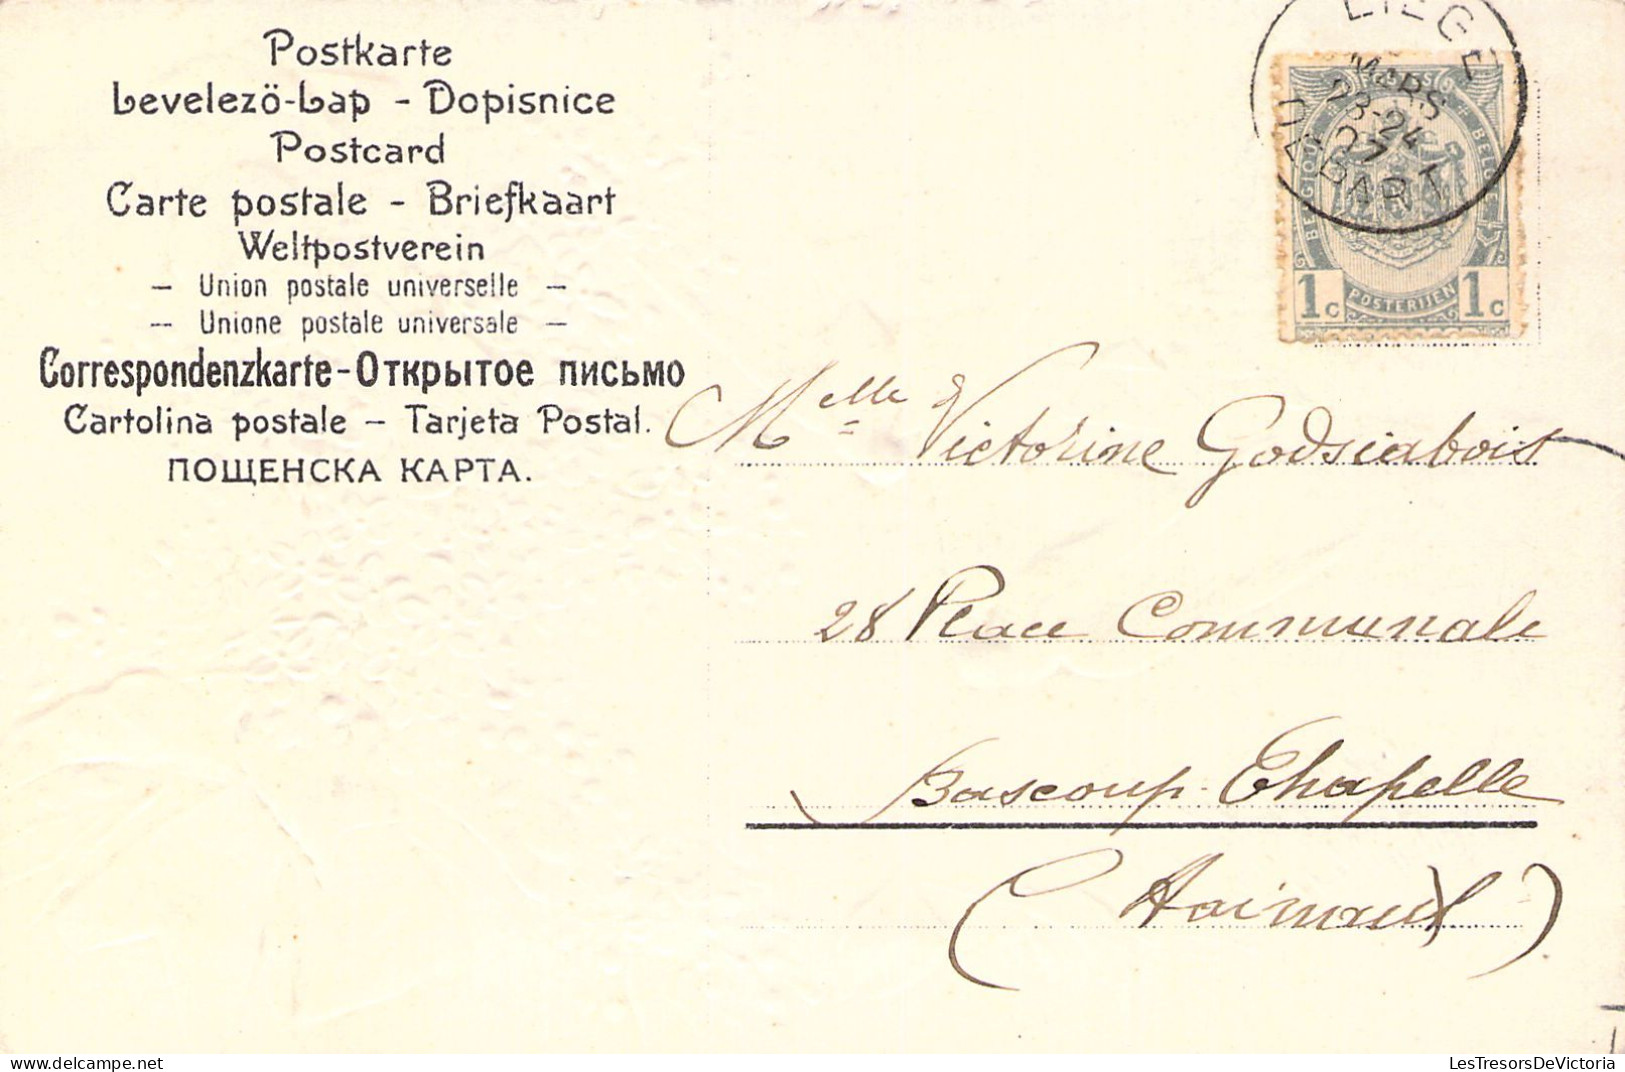 Postkarte
Levelezö-Lap - Dopisnice
Postcard
Carte postale - Briefkaart
Weltpostverein
- Union postale universelle -
-- Unione postale universale -
Correspondenzkarte-Открытое письмо
Cartolina postale - Tarjeta Postal.
ПОЩЕНСКА КАРТА.
LIEGE
MARS
23-24
07
DEPART
BELGIQUE
POSTERIJEN
1c 1c
Melle Victorine Godsiabois
28 Place Communale
Bascoup-Chapelle
(Hainaut)
LesTresorsDeVictoria